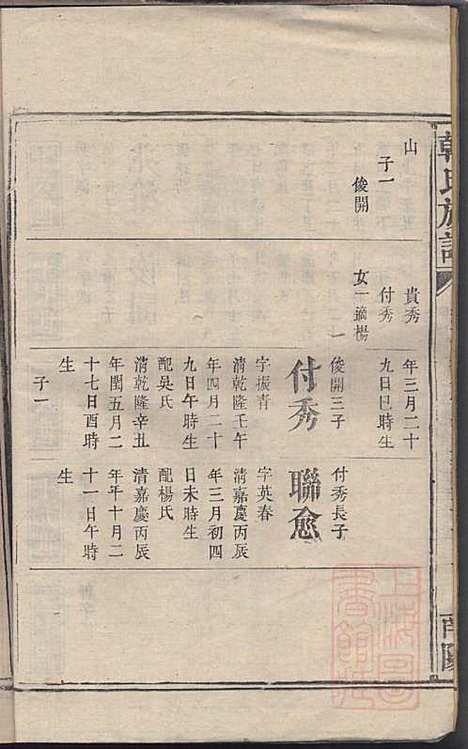 韓氏族譜
山
子一
俊開
貴秀
付秀
女一適楊
年三月二十
九日巳時生
俊開三子
付秀
字振青
清乾隆壬午
年四月二十
九日午時生
配吳氏
清乾隆辛丑
年閏五月二
十七日酉時
生
子一
付秀長子
聯愈
字英春
清嘉慶丙辰
年三月初四
日未時生
配楊氏
清嘉慶丙辰
年年十月二
十一日午時
生
南陽